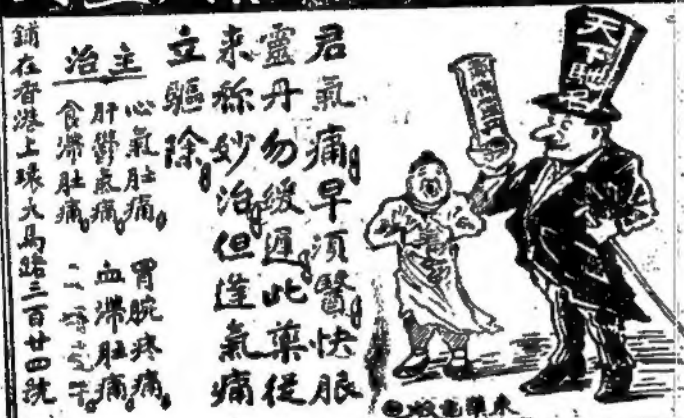 天下馳名
君氣痛。早須醫。快服
靈丹勿緩遲。此藥從
来称妙治。但逢氣痛
立驅除。
主治
心氣肚痛。胃腕疼痛。
肝鬱氣痛。血滯肚痛。
食滯肚痛。
鋪在香港上環大馬路三百廿四號